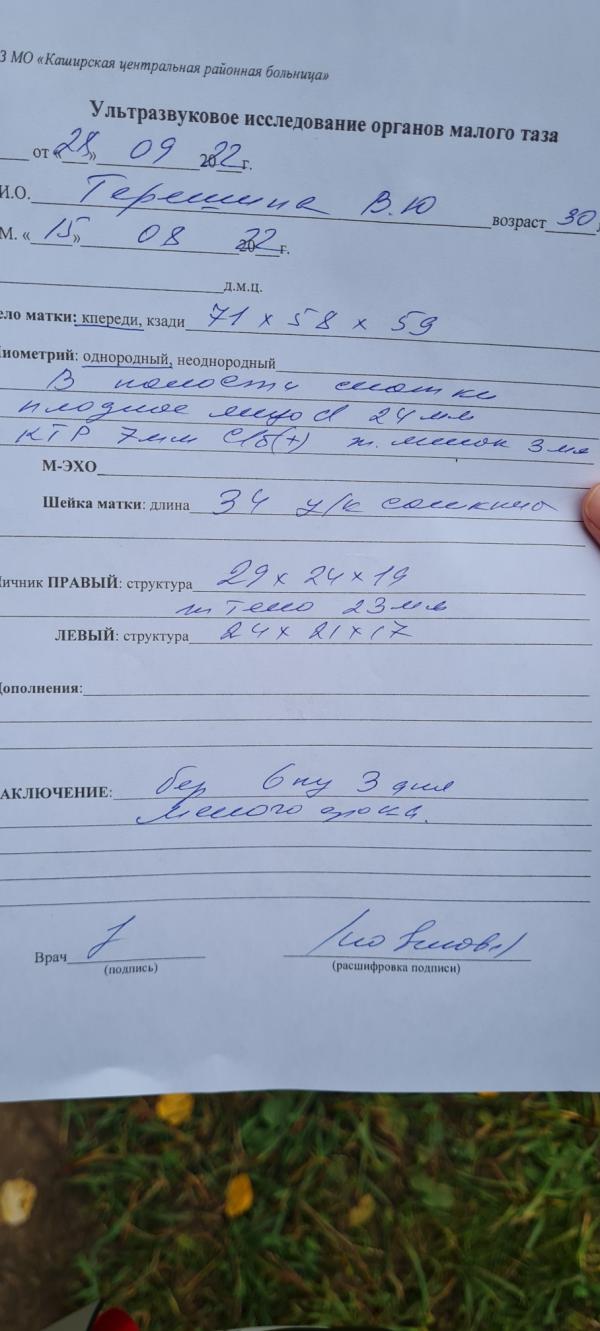 З МО «Каширская центральная районная больница»
Ультразвуковое исследование органов малого таза
от «28» 09 2022г.
И.О. Терешина В.Ю возраст 30
М. «15» 08 2022г.
д.м.ц.
ело матки: кпереди, кзади 71 х 58 х 59
иометрий: однородный, неоднородный
В полости матки
плодное яйцо d 24мм
КТР 7мм С/б(+) ж. мешок 3мм
М-ЭХО
Шейка матки: длина 34 у/к сомкнут
ичник ПРАВЫЙ: структура 29х24х19
ж тело 23мм
ЛЕВЫЙ: структура 24х21х17
Дополнения:
АКЛЮЧЕНИЕ: бер 6 3 дня
малого срока.
Врач
(подпись) (расшифровка подписи)